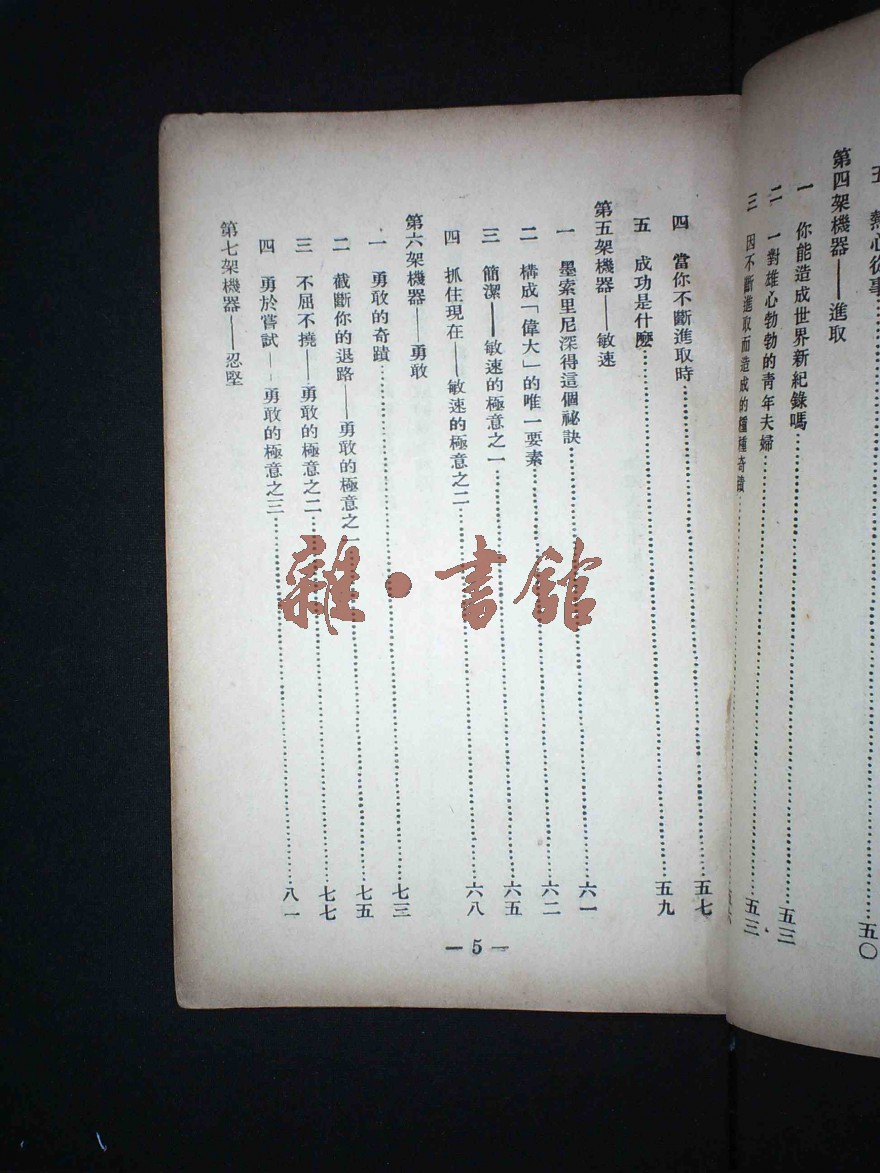 五 熱心從事……五〇
第四架機器——進取
一 你能造成世界新紀錄嗎……五三
二 一對雄心勃勃的青年夫婦……五三
三 因不斷進取而造成的種種奇蹟……
四 當你不斷進取時……五七
五 成功是什麼……五九
第五架機器——敏速
一 墨索里尼深得這個祕訣……六一
二 構成「偉大」的唯一要素……六二
三 簡潔——敏速的極意之一……六五
四 抓住現在——敏速的極意之二……六八
第六架機器——勇敢
一 勇敢的奇蹟……七三
二 截斷你的退路——勇敢的極意之一……七五
三 不屈不撓——勇敢的極意之二……七七
四 勇於嘗試——勇敢的極意之三……八一
第七架機器——忍堅
— 5 —
雜·書館